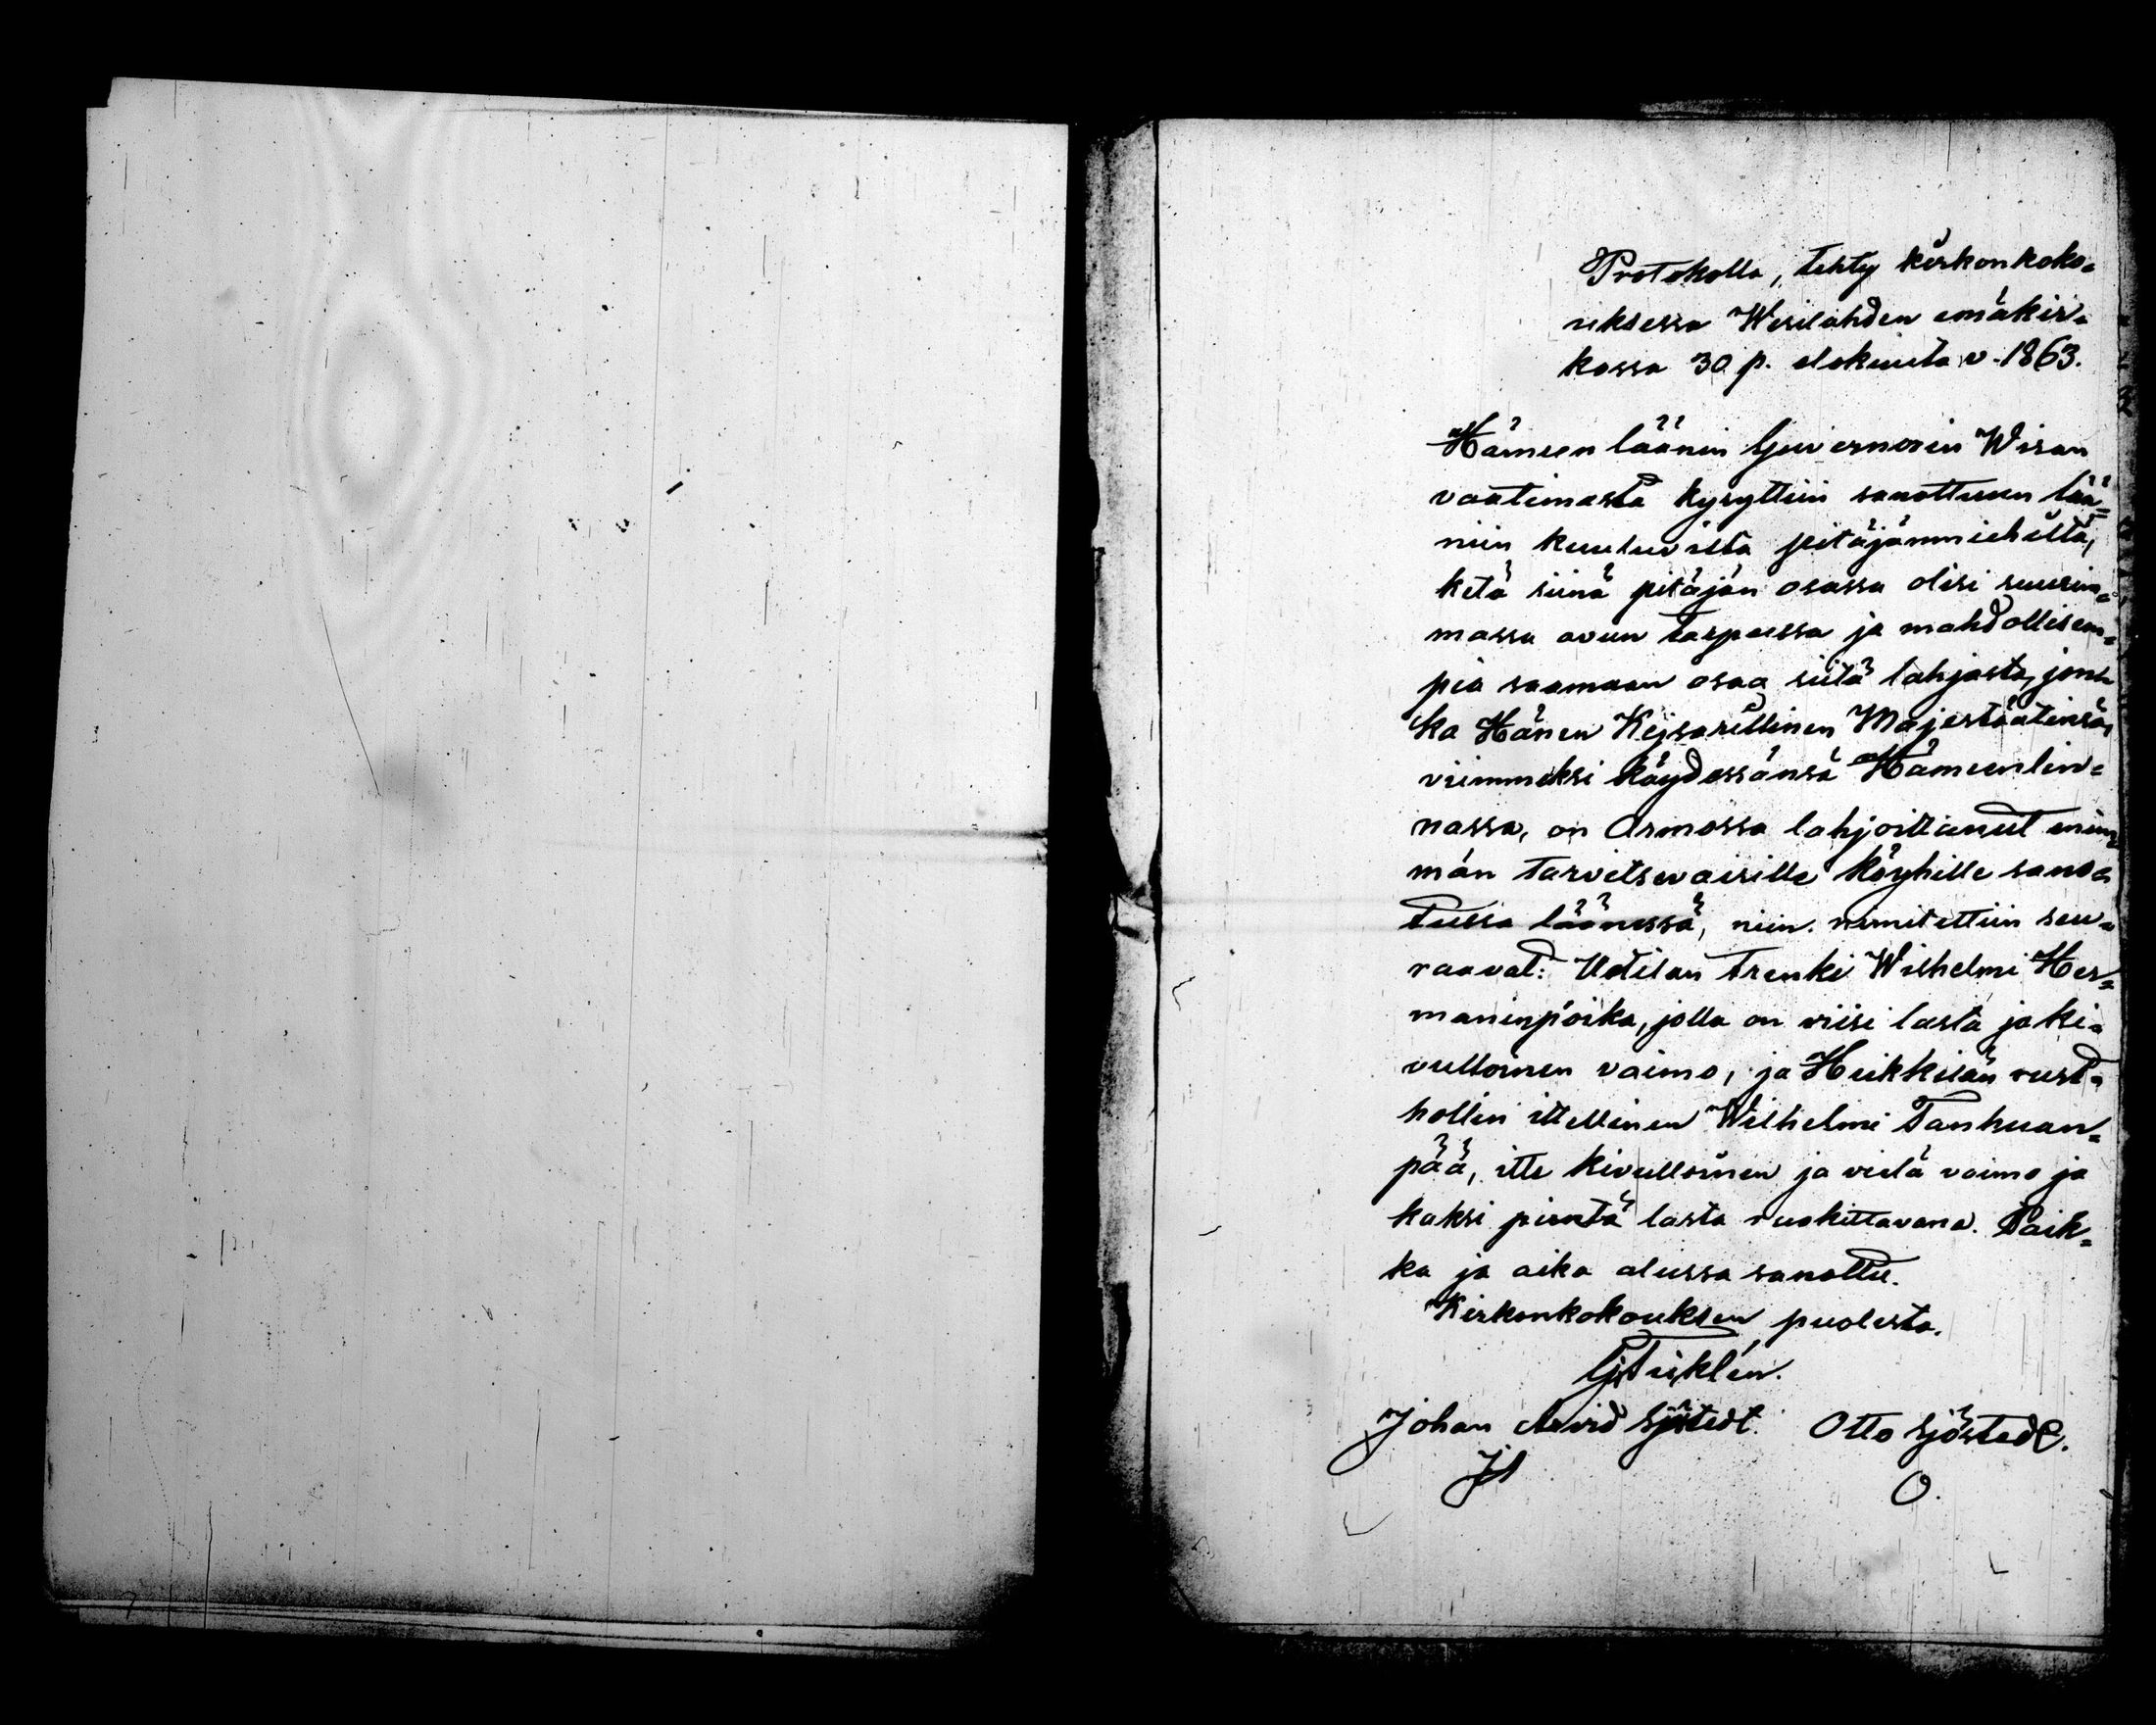 Protokolla, tehty kirkonkoko-
uksessa Wesilahden emäkir-
kossa 30 p. elokuuta v. 1863.
Hämeen läänin Guvernörin Wiran
vaatimasta kysyttiin sanottuun lää-
niin kuuluvilta pitäjänmiehiltä,
ketä siinä pitäjän osassa olisi suurim-
massa avun tarpeessa ja mahdollisem-
pia saamaan osaa siitä lahjasta, jon-
ka Hänen Kejsarillinen Majestäätinsä,
viimmeksi käydessänsä Hämeenlin-
nassa, on Armossa lahjoittanut enim-
män tarvitsevaisille köyhille sano-
tussa läänissä, niin nimitettiin seu-
raavat: Uotilan trenki Wilhelmi Her-
maninpoika, jolla on viisi lasta ja ki-
vulloinen vaimo, ja Heikkilän rust-
hollin itellinen Wilhelmi Tanhuan-
pää, itte kivulloinen ja vielä vaimo ja
kaksi pientä lasta ruokittavana. Paik-
ka ja aika alussa sanottu.
Kirkonkokouksen puolesta.
Johan Arvid Sjöstedt. Otto Sjöstedt.
O.